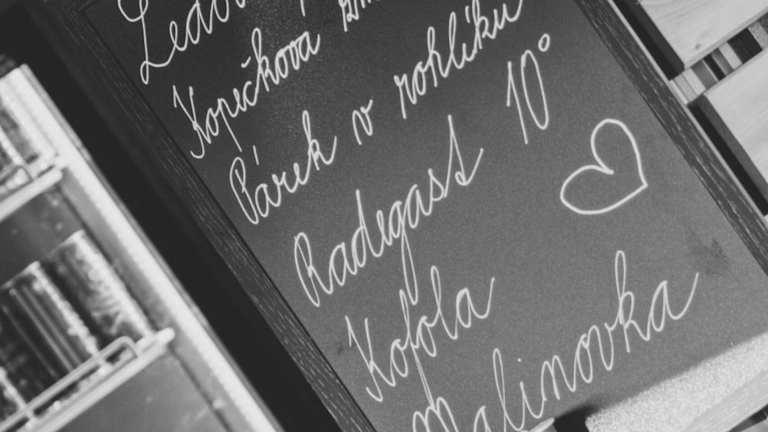 Kopečková
Párek v rohlíku
Radegast 10°
Kofola
Malinovka